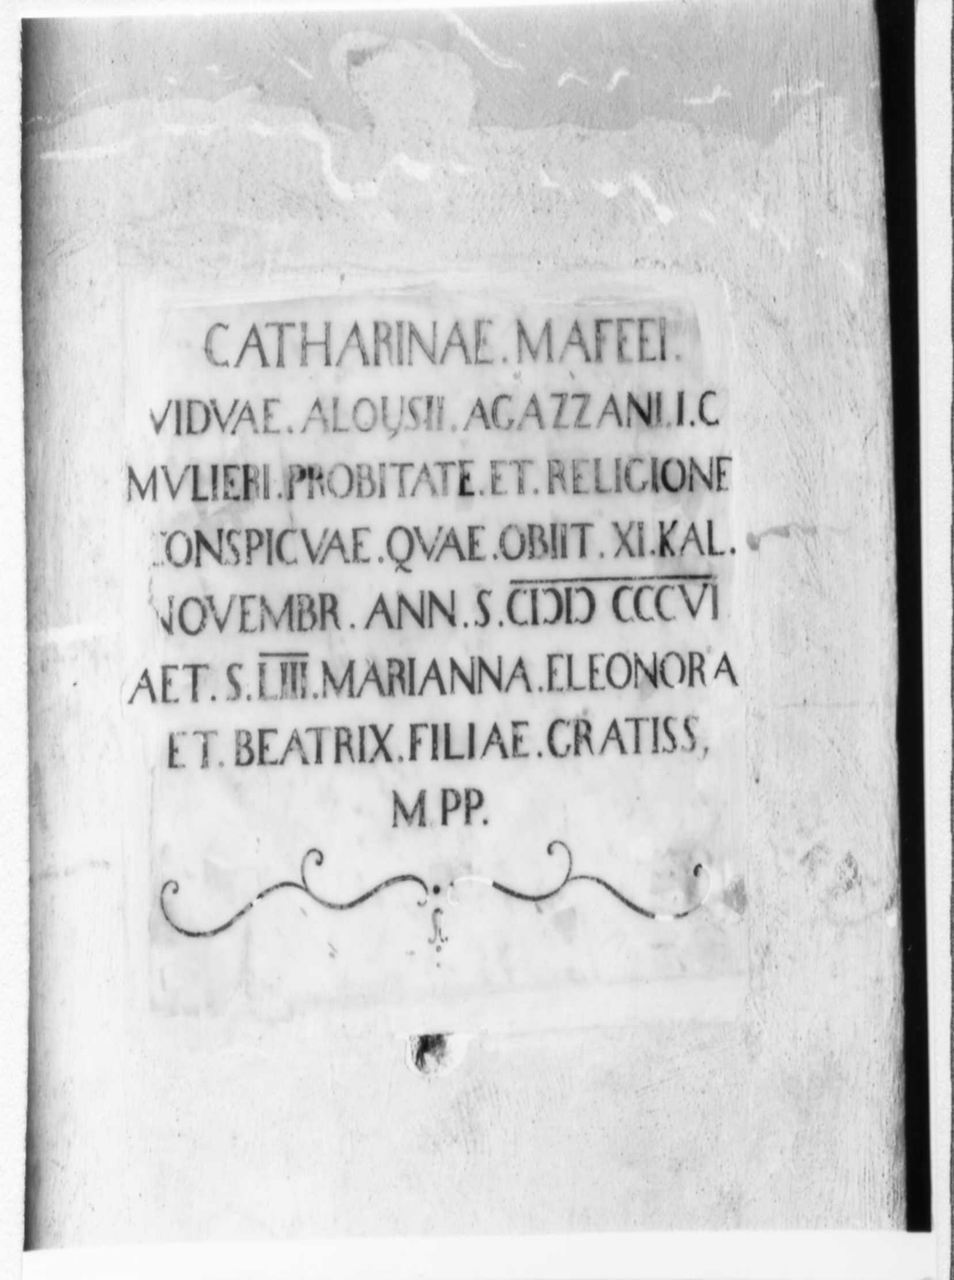 CATHARINAE . MAFEEI .
VIDVAE . ALOYSII . AGAZZANI . I . C
MVLIERI . PROBITATE . ET . RELIGIONE
CONSPICVAE . QVAE . OBIIT . XI . KAL .
NOVEMBR . ANN . S . CIƆIƆ CCCVI
AET . S . LIII . MARIANNA . ELEONORA
ET . BEATRIX . FILIAE . GRATISS,
M PP.